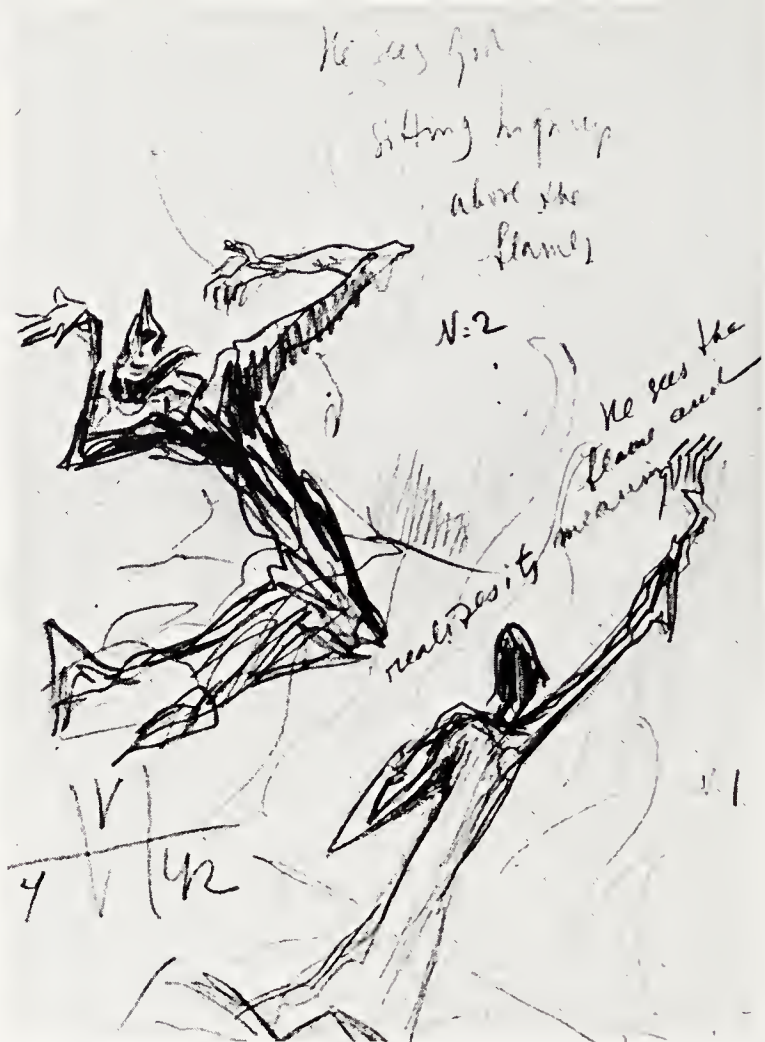 He sees God
sitting high up
above the
flames
N:2
He sees the
flame and
realizes its meaning
N. 1
V
4
42